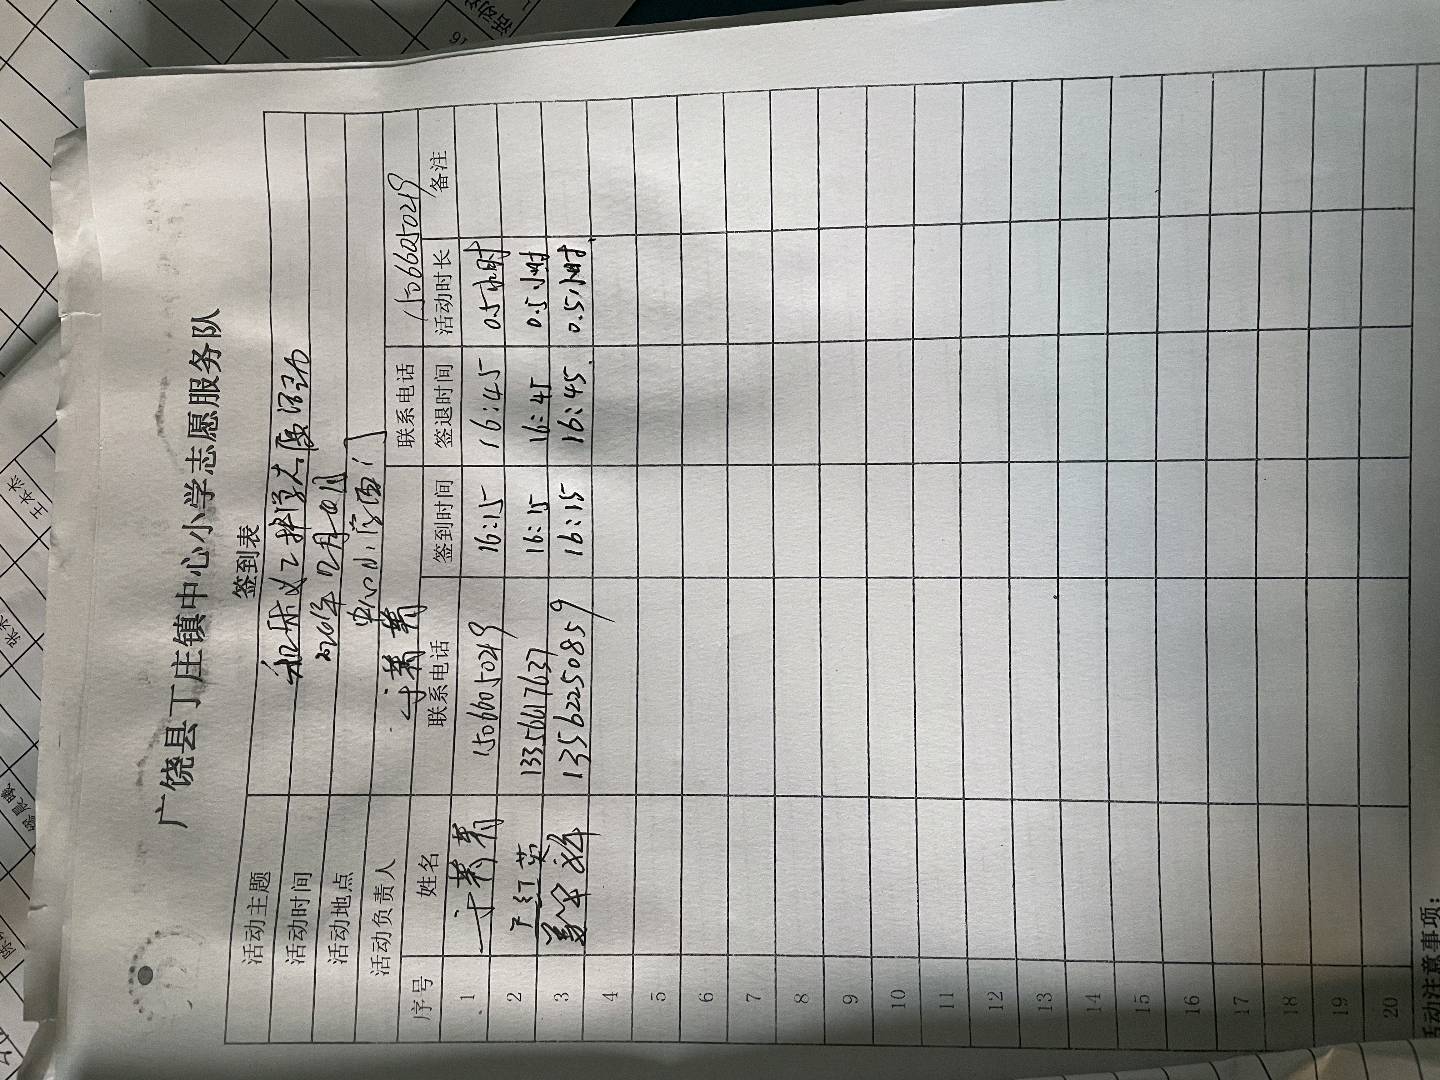 广饶县丁庄镇中心小学志愿服务队
签到表
活动主题 和林义工护学志愿活动
活动时间
活动地点 中心小学西门
活动负责人 联系电话 15066050219
序号 姓名 联系电话 签到时间 签退时间 活动时长 备注
1 15066050219 16:15 16:45 0.5小时
2 13356617637 16:15 16:45 0.5小时
3 13562250859 16:15 16:45 0.5小时
4
5
6
7
8
9
10
11
12
13
14
15
16
17
18
19
20
活动注意事项: